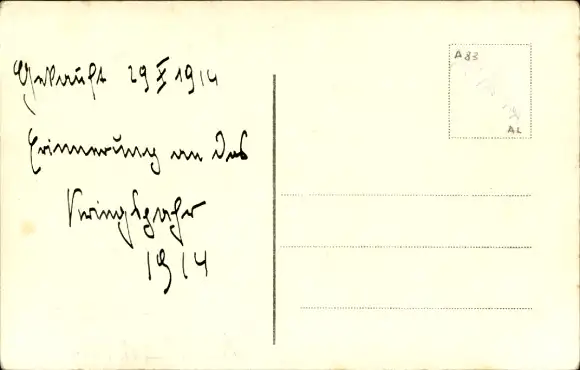 Gekauft 29 X 1914
Erinnerung an das
Kriegsjahr
1914
A83
AL